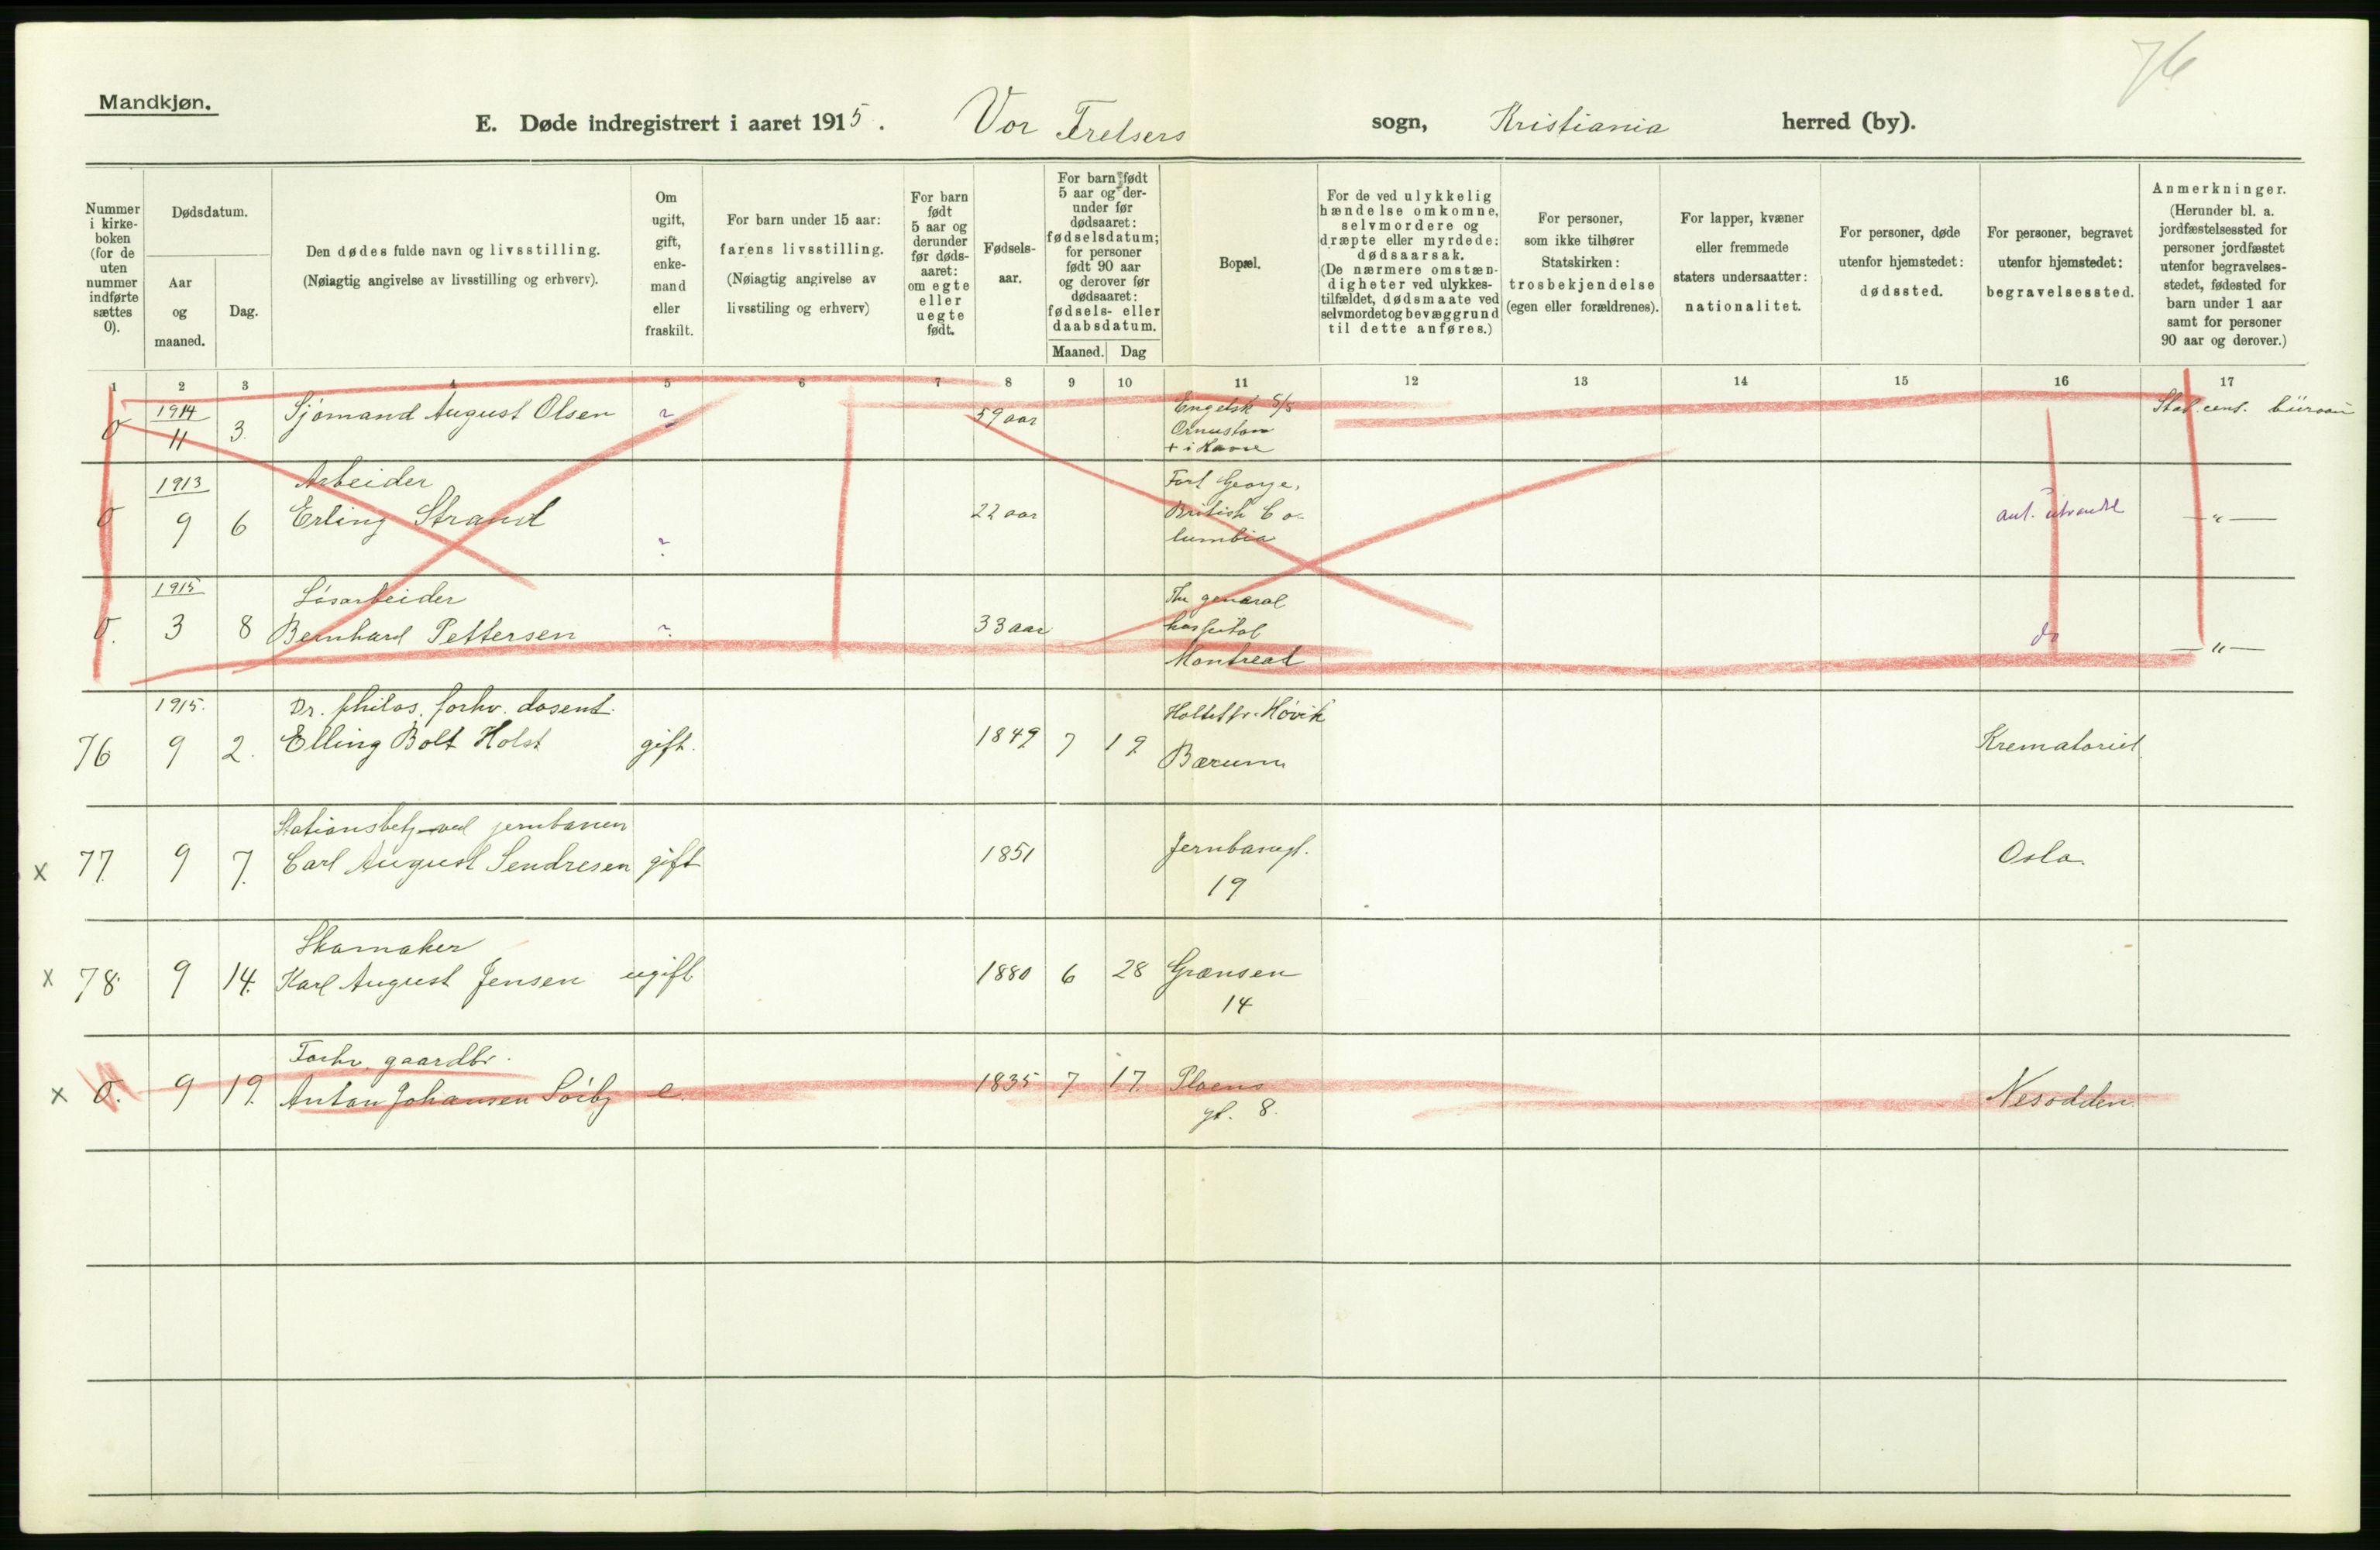 76
Mandkjøn.
E. Døde indregistrert i aaret 1915. Vor Frelsers sogn, Kristiania herred (by).
Nummer i kirke-boken (for de uten nummer indførte sættes 0).
Dødsdatum.
Aar og maaned.
Dag.
Den dødes fulde navn og livsstilling.
(Nøiagtig angivelse av livsstilling og erhverv).
Om ugift, gift, enke-mand eller fraskilt.
For barn under 15 aar: farens livsstilling.
(Nøiagtig angivelse av livsstiling og erhverv)
For barn født 5 aar og derunder før døds-aaret: om egte eller uegte født.
Fødsels-aar.
For barn født 5 aar og der-under før dødsaaret: fødselsdatum; for personer født 90 aar og derover før dødsaaret: fødsels- eller daabsdatum.
Maaned. Dag
Bopæl.
For de ved ulykkelig hændelse omkomne, selvmordere og dræpte eller myrdede: dødsaarsak.
(De nærmere omstæn-digheter ved ulykkes-tilfældet, dødsmaate ved selvmordet og bevæggrund til dette anføres.)
For personer, som ikke tilhører Statskirken: trosbekjendelse (egen eller forældrenes).
For lapper, kvæner eller fremmede staters undersaatter: nationalitet.
For personer, døde utenfor hjemstedet: dødssted.
For personer, begravet utenfor hjemstedet: begravelsessted.
Anmerkninger.
(Herunder bl. a. jordfæstelsessted for personer jordfæstet utenfor begravelses-stedet, fødested for barn under 1 aar samt for personer 90 aar og derover.)
1 2 3 4 5 6 7 8 9 10 11 12 13 14 15 16 17
0 1914 11 3. Sjømand August Olsen ? 59 aar Engelsk S/S
+ i Havre
Stat. cent. büraau
1913 Arbeider Fort George,
0 9 6 Erling Strand ? 22 aar British Co-
lumbia
ant. utvandr. ? — " —
1915 Løsarbeider The general
0. 3 8 Bernhard Pettersen ? 33 aar hospital
Montreal
do — " —
1915. Dr. philos. forhv. dosent.
76 9 2. Elling Bolt Holst gift. 1849 7 19 Holtet pr. Høvik
Bærum
Krematoriet.
Stationsbetj. ved jernbanen
x 77. 9 7. Carl August Sendresen gift 1851 Jernbanegt.
19
Oslo.
Skomaker
x 78. 9 14. Karl August Jensen ugift 1880 6 28 Grænsen
14
Forhv. gaardbr.
x 0. 9 19. Anton Johansen Søiby e. 1835 7 17. Pløens
gt. 8.
Nesodden.